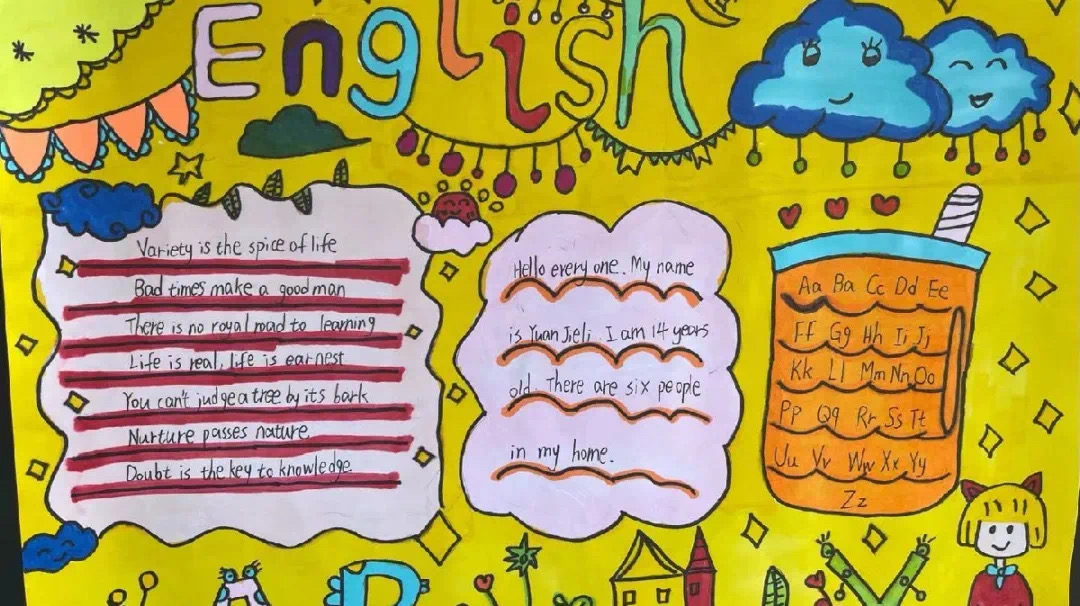 English
Variety is the spice of life
Bad times make a good man
There is no royal road to learning
Life is real, life is earnest
You can't judge a tree by its bark
Nurture passes nature
Doubt is the key to knowledge
Hello every one. My name
is Yuan Jieli. I am 14 years
old. There are six people
in my home.
Aa Ba Cc Dd Ee
Ff Gg Hh Ii Jj
Kk Ll Mm Nn Oo
Pp Qq Rr Ss Tt
Uu Vv Ww Xx Yy
Zz